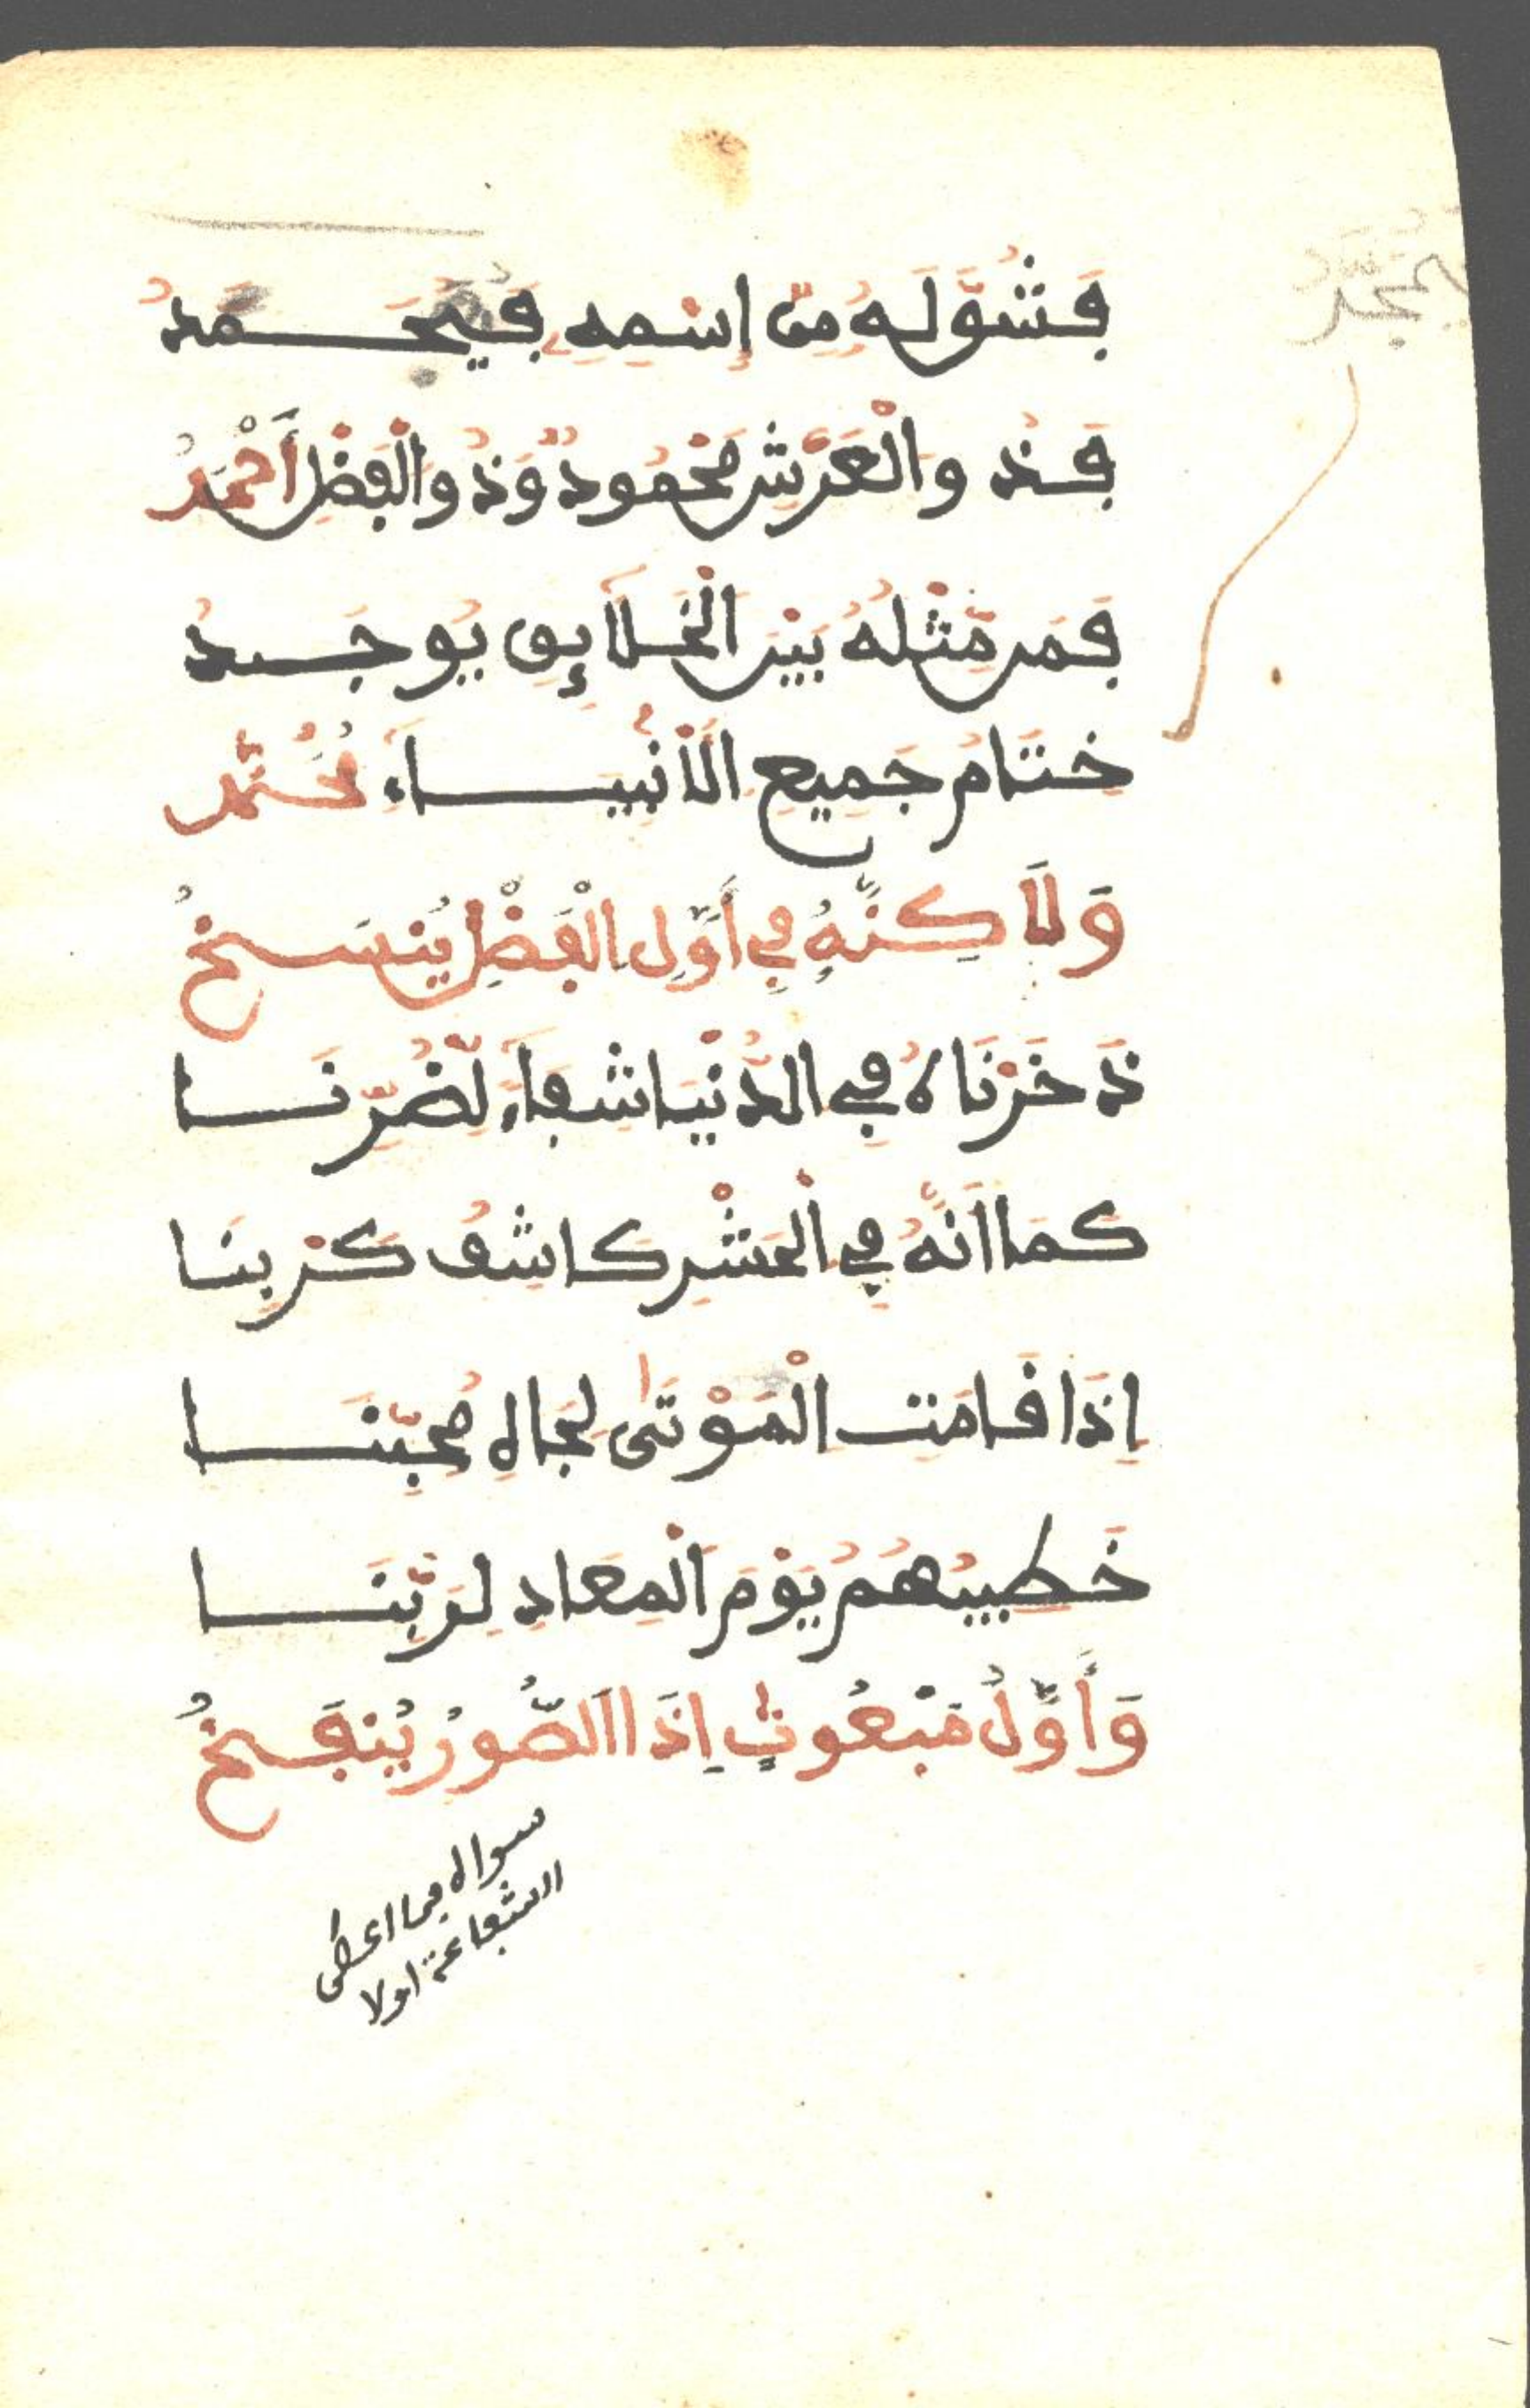 فَشُوَّ لَهُ مِنِ إِسْمِهِ فَيُحْمَدُ
فَذُو الْعَرْشِ مَحْمُودٌ وَذُو الْفَضْلِ أَحْمَدُ
فَمَن مِّثْلُهُ بَيْنَ الْخَلَآئِقِ يُوجَدُ
خِتَامُ جَمِيعِ الْأَنْبِيَاءِ مُحَمَّدُ
وَلَاكِنَّهُ فِي أَوَّلِ الْفَضْلِ يُنسَخُ
ذَخَرْنَاهُ فِي الدُّنْيَا شِفَاءً لِضُرِّنَا
كَمَا أَنَّهُ فِي الْحَشْرِ كَاشِفُ كَرْبِنَا
إِذَا قَامَتِ الْمَوْتَىٰ لِجَاهِ مُحِبِّنَا
خَطِيبُهُمُ يَوْمَ الْمَعَادِ لِرَبِّنَا
وَأَوَّلُ مَبْعُوثٍ إِذَا الصُّورُ يُنفَخُ
سواه فما اعطى
الشفاعة اولا